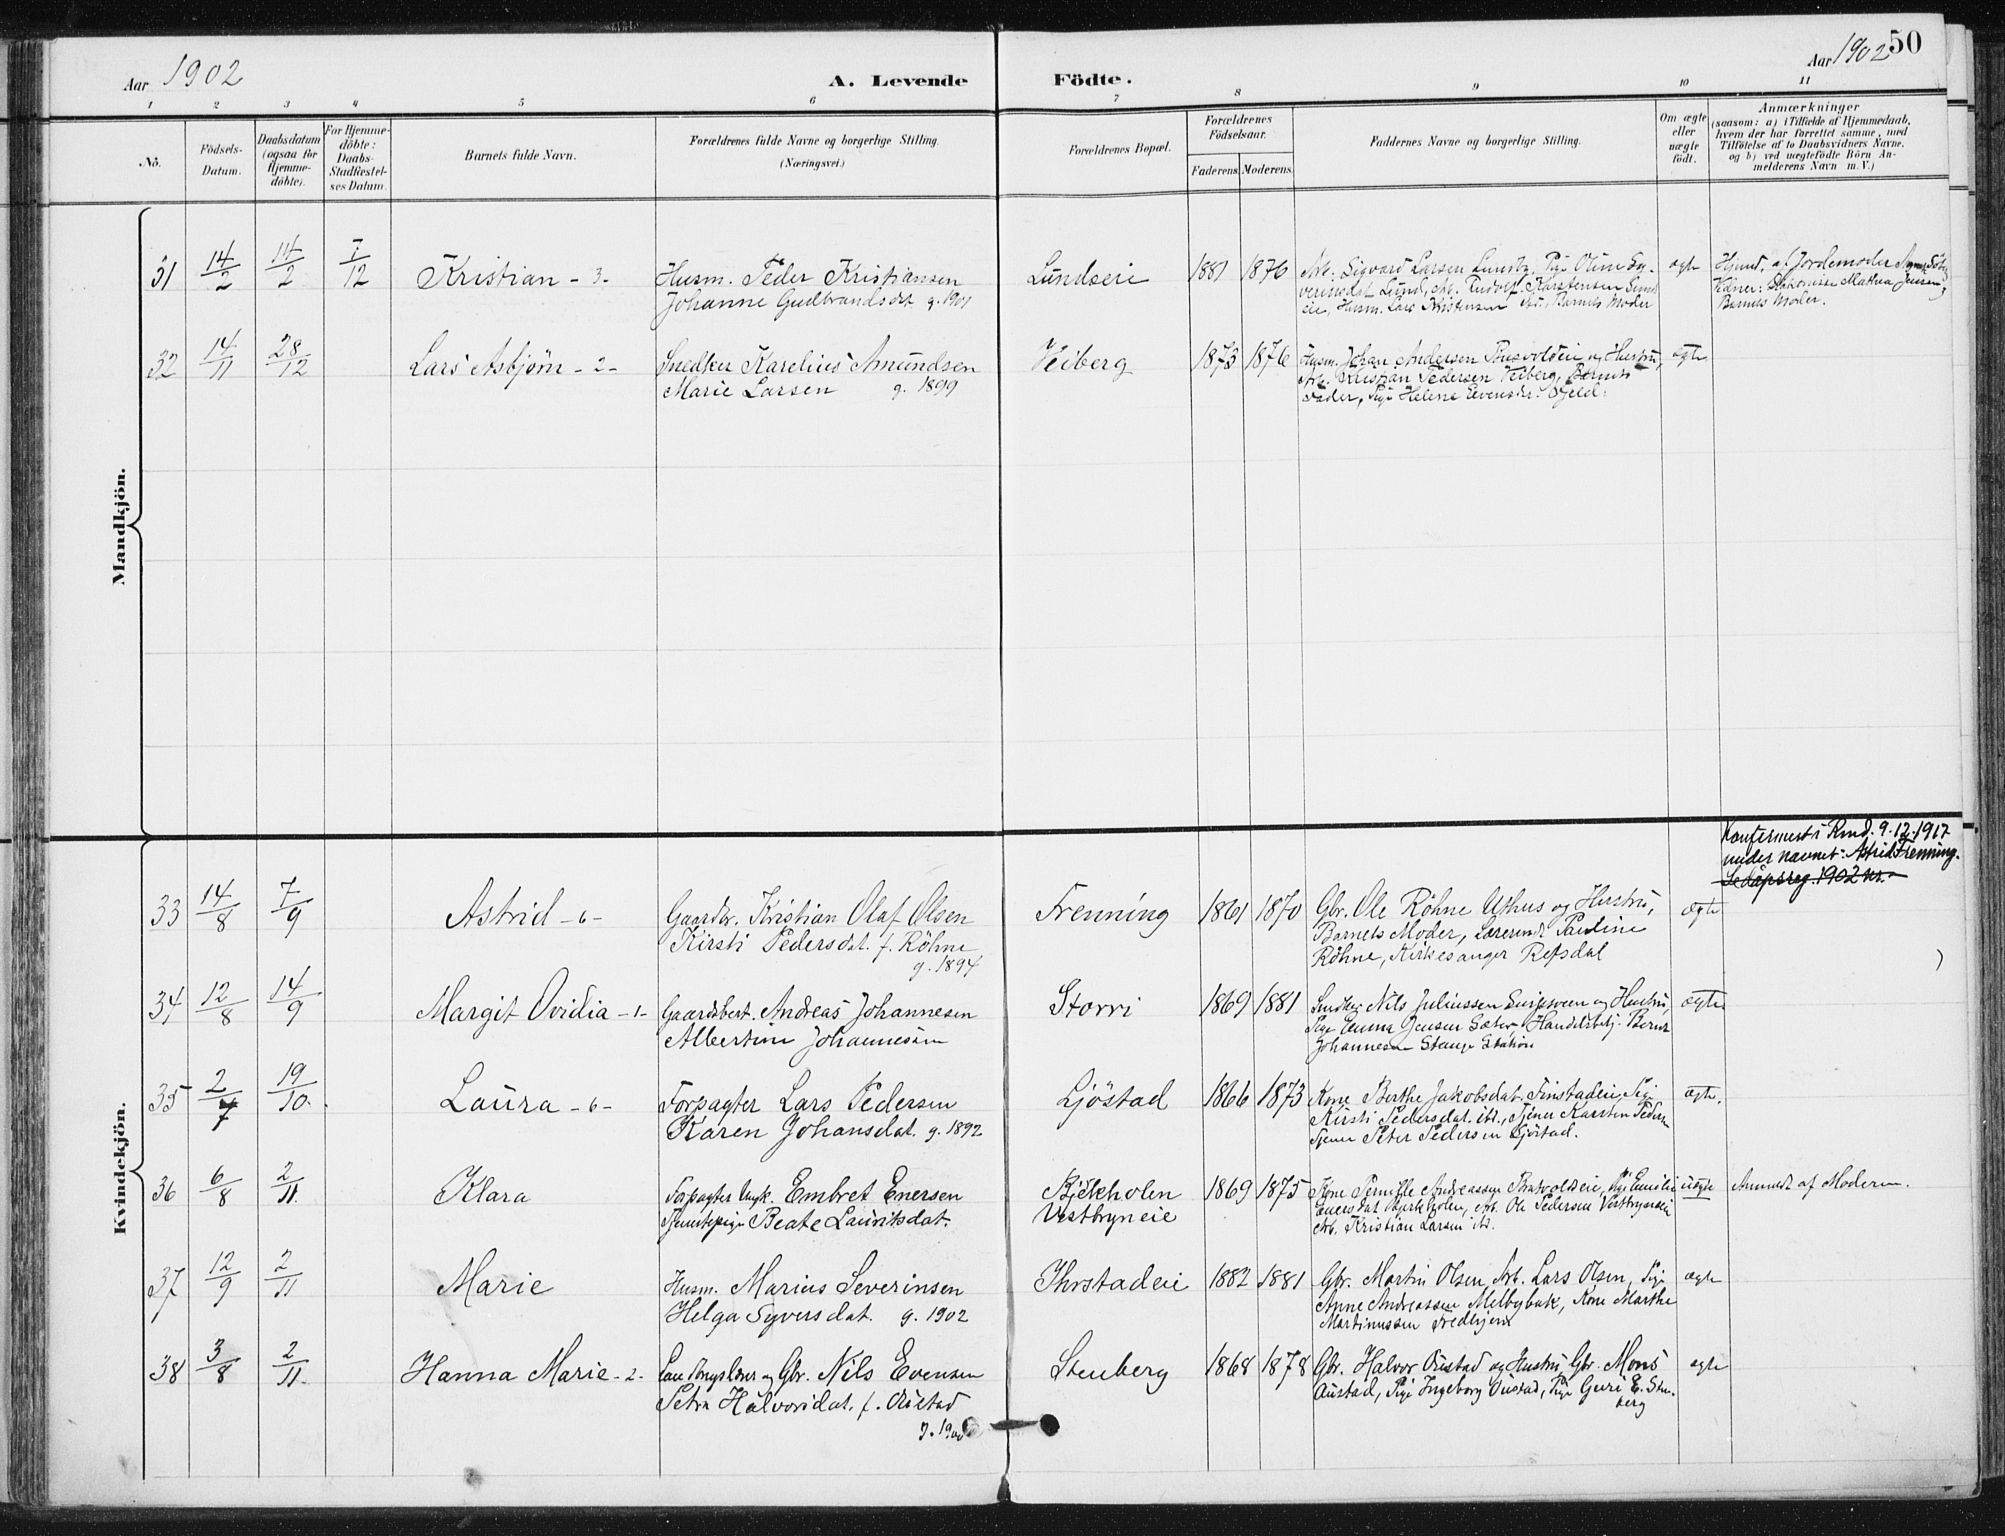 Aar 1902
A. Levende
Födte.
Aar 1902
50
1 2 3 4 5 6 7 8 9 10 11
No.
Födsels-
Datum.
Daabsdatum
(ogsaa for
Hjemme-
döbte).
For Hjemme-
döbte:
Daabs-
Stadfæstel-
ses Datum.
Barnets fulde Navn.
Forældrenes fulde Navne og borgerlige Stilling.
(Næringsvei.)
Forældrenes Bopæl.
Forældrenes
Födselsaar.
Faderens. Moderens.
Faddernes Navne og borgerlige Stilling.
Om ægte
eller
uægte
födt.
Anmærkninger
(saasom: a) i Tilfælde af Hjemmedaab,
hvem der har forrettet samme, med
Tilföielse af to Daabsvidners Navne,
og b) ved uægtefödte Börn An-
melderens Navn m. V.)
Mandkjön.
31 14/2 14/2 7/12 Kristian - 3 -
Husm. Peder Kristiansen
Johanne Gudbrandsdat g. 1901
Lundseie 1881 1876
Arb. Sigvard Larsen Lundby, Pige Oline Sy-
versdat Lund, Arb. Rudolf Karstensen Lunds
eie, Husm. Lars Kristensen ibd., Barnets Moder
ægte
Hjmd. af Jordemoder
Vdner: Mathea Jensen,
Barnets Moder.
32 14/11 28/12 Lars Asbjørn - 2 -
Snedker Karelius Amundsen
Marie Larsen g. 1899
Veiberg 1873 1876
Husm. Johan Andersen og Hustru,
Arb. Kristian Pedersen Veiberg, Barnets
Fader, Pige Helene Evensdat. Fjeld.
ægte
Kvindekjön.
Konfirmert i Rmd. 9.12.1917
under navnet: Astrid Frenning.
Se dåpsreg. 1902 nr.
33 14/8 7/9 Astrid - 6 -
Gaardbr. Kristian Olaf Olsen
Kirsti Pedersdat. f. Röhne
g. 1894
Frenning 1861 1870
Gbr. Ole Röhne Uthus og Hustru,
Barnets Moder, Lærerinde Pauline
Röhne, Kirkesanger Refsdal
ægte
34 12/8 14/9 Margit Ovidia - 1 -
Gaardsbest. Andreas Johannesen
Albertine Johannesen
Storri 1869 1881
Snedker Nils Juliussen og Hustru,
Pige Emma Jensen Sæter, Handelsbetj. Bernt
Johannesen Stange Station
ægte.
35 2/7 19/10. Laura - 6 -
Forpagter Lars Pedersen
Karen Johansdat. g. 1892
Ljöstad 1866 1873
Kone Berthe Jakobsdat. Finstadeie, Pige
Kirsti Pedersdat. ibd., Tjener Karsten Peders
Tjener Peter Pedersen Ljöstad.
ægte.
36 6/8 2/11. Klara
Forpagter Ungk. Embret Enersen
Tjenestepige Beate Lauritsdat.
Björkholen
Vestbyneie
1869 1875
Kone Pernille Andreassen Pige Emilie
Enersdat Björkholen, Arb. Ole Pedersen Vestbyneie
Arb. Kristian Larsen ibd.
uægte
Anmeldt af Moderen.
37 12/9 2/11 Marie
Husm. Marius Severinsen
Helga Syversdat. g. 1902
Ihrstadeie 1882 1881
Gbr. Martin Olsen, Arb. Lars Olsen, Pige
Anne Andreassen Melbybak, Kone Marthe
Martinussen Fredhjem
ægte
38 3/8 2/11. Hanna Marie - 2 -
og Gbr. Nils Evensen
Petra Halvorsdat. f. Oustad
g. 1900
Stenberg 1868 1878
Gbr. Halvor Oustad og Hustru, Gbr. Mons
Oustad, Pige Ingeborg Oustad, Pige Guri E. Sten-
berg
ægte